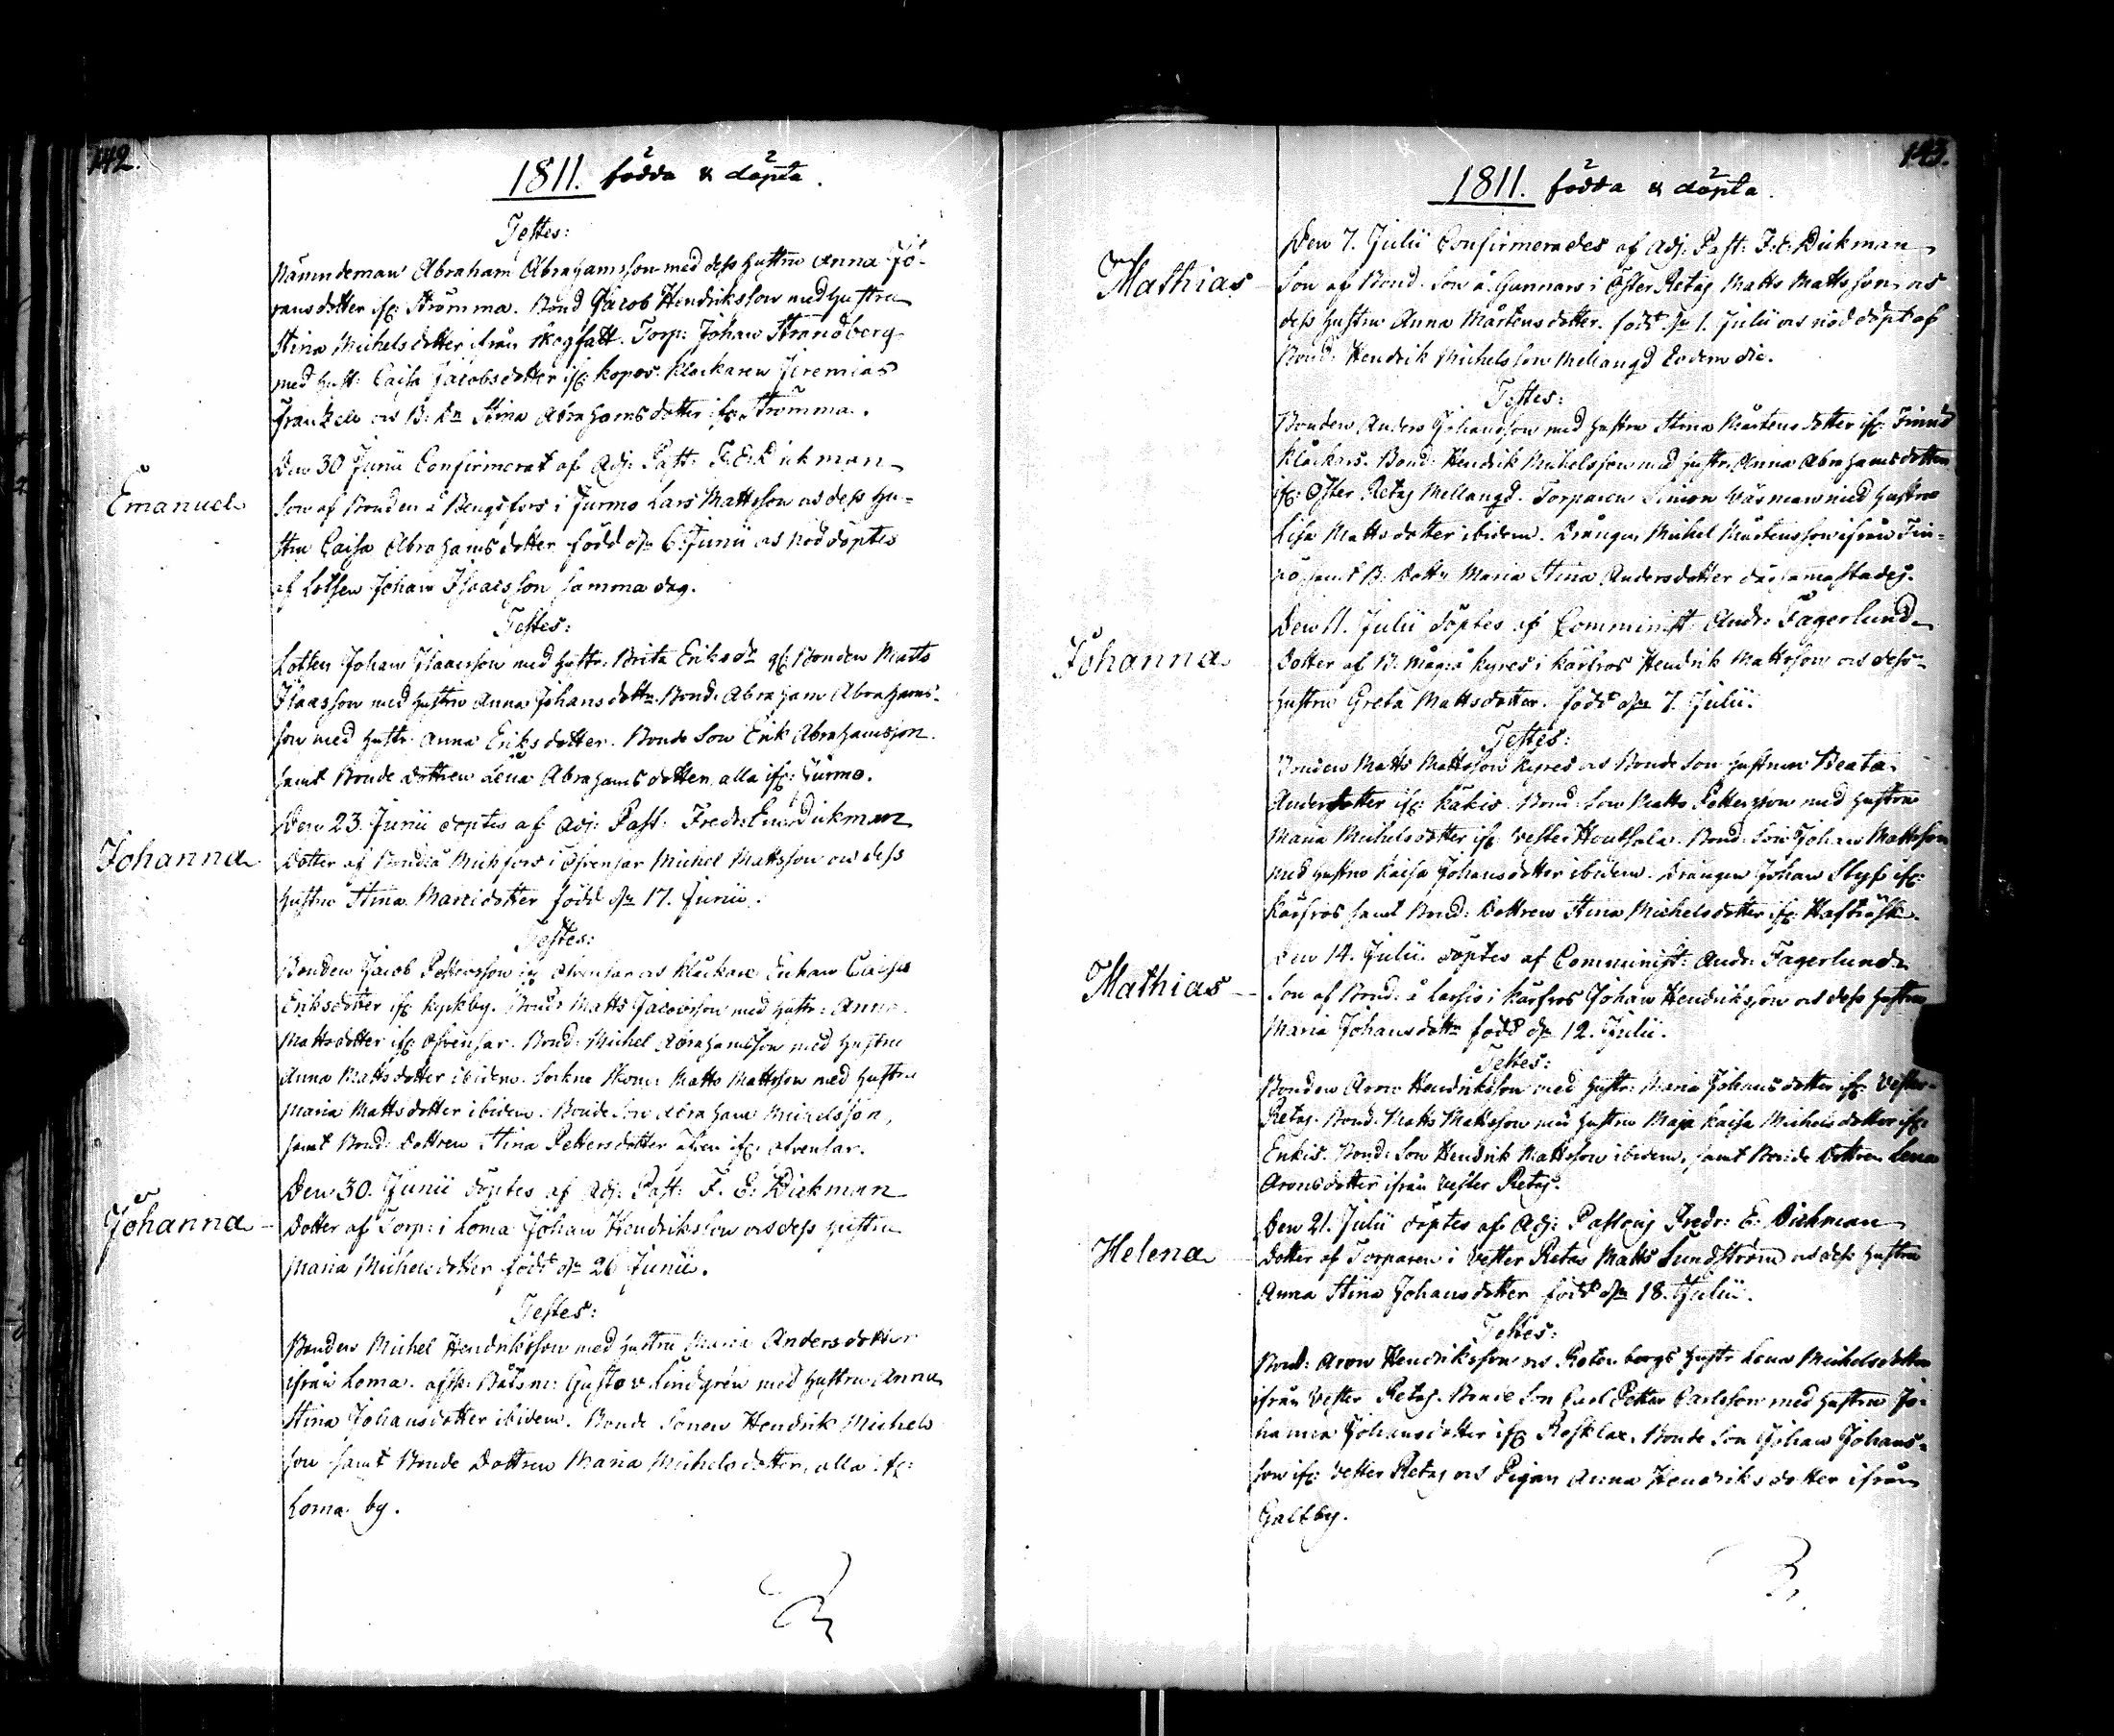 142.
1811. födda & döpta.
Testes:
Nämndeman Abraham Abrahamsson med dess hustru Anna Jö-
ransdotter ifr: Strömma. Bond Jacob Hendriksson med hustru
Stina Michelsdotter ifrån Skogsatt. Torp: Johan Strandberg
med hust: Caisa Jacobsdotter ifr: Kopos. Klockaren Jeremias
Frantzen och B: dn Stina Abrahamsdotter ifr: Strömma.
Emanuel
Den 30 Junii Confirmerat af Adj: Past: F: E: Dickman
Son af Bonden å Bengsfors i Jurmo Lars Mattsson och dess hu-
stru Caisa Abrahamsdotter född d: 6 Junii och nöddöptes
af Lotsen Johan Isaacsson samma dag.
Testes:
Lotsen Johan Isaacsson med hustr: Brita Eriksdr Bonden Matts
Isaacsson med hustru Anna Johansdotter. Bond: Abraham Abrahams-
son med hustr: Anna Eriksdotter. Bonde Son Erik Abrahamsson
samt Bonde dottren Lena Abrahamsdotter, alla ifr: Jurmo.
Johanna
Den 23. Junii döptes af Adj: Past: Fredr: Em: Dickman
dotter af Bond: å i Ofvensar Michel Mattsson och dess
hustru Stina dotter född dn 17. Junii.
Testes:
Bonden Jacob Pettersson ifr: Ofvensar och Klockare Enkan Caisa
Eriksdotter ifr: Kyrkby. Bond: Matts Jacobsson med hustr: Anna
Mattsdotter ifr: Ofvensar. Bond: Michel Abrahamsson med hustru
Anna Mattsdotter ibidem. Sockne Skom: Matts Mattsson med hustru
Maria Mattsdotter ibidem. Bonde Son Abraham Michelsson,
samt Bond: dottren Stina Pettersdotter äfven ifr: Ofvensar.
Johanna
Den 30. Junii döptes af Adj: Past: F. E: Dickman
dotter af Torp: i Loma Johan Hendriksson och dess hustru
Maria Michelsdotter född dn 26 Junii.
Testes:
Bonden Michel Hendriksson med hustru Maria Andersdotter
ifrån Loma. afsk: Båtsm: Gustav Lindgrén med hustru Anna
Stina Johansdotter ibidem. Bonde Sonen Hendrik Michels
son samt Bonde Dottren Maria Michelsdotter, alla ifr:
Loma by.
143.
1811. födda & döpta.
Mathias
Den 7. Julii Confirmerades af Adj: Past: F: E: Dickman
Son af Bond: Son å Gunnars i Öster Retais Matts Mattsson och
dess hustru Anna Mårtensdotter. född dn 1. Julii och nöddöpt af
Bond: Hendrik Michelsson Mellangd Eodem die.
Testes:
Bonden Anders Johansson med hustru Stina Mårtensdotter ifr: Finnö
Klockars. Bond: Hendrik Michelsson med hustr: Anna Abrahamsdotter
ifr: Öster Retais Mellangd. Torparen Simon Wäsman med hustru
Lisa Mattsdotter ibidem. Drängen Michel Mårtensson ifrån Fin-
nö, samt B: Dottr Maria Stina Andersdotter därsammastädes.
Johanna
Den 11. Julii döptes af Comminist: Andr: Fagerlund
Dotter af B: Måg å Kyres i Kårfros Hendrik Mattsson och dess
hustru Greta Mattsdotter. född dn 7. Julii.
Testes:
Bonden Matts Mattsson Kyres och Bonde Son hustrun Beata
Andersdotter ifr: Käkis. Bond: Son Matts Pettersson med hustru
Maria Michelsdotter ifr: Vester Houtsala. Bond: Son Johan Mattsson
med hustru Kaisa Johansdotter ibidem. Drängen Johan Slyf ifr:
Kårfros samt Bond: Dottren Stina Michelsdotter ifr: Hafträsk.
Mathias
Den 14. Julii döptes af Comminist: Andr: Fagerlund
Son af Bond: å Larsis i Kårfros Johan Hendriksson och dess hustru
Maria Johansdottr född dn 12. Julii.
Testes:
Bonden Aron Hendriksson med hustr: Maria Johansdotter ifr: Vester
Retais. Bond: Matts Mattsson med hustru Maja Kaisa Michelsdotter ifr:
Enkis. Bond: Son Hendrik Mattsson ibidem, samt Bonde Dottren Lena
Aronsdotter ifrån Vester Retais.
Helena
Den 21. Julii döptes af Adj: Pastoris Fredr: E: Dickman
dotter af Torparen i Vester Retais Matts Sundström och dess hustru
Anna Stina Johansdotter född dn 18. Julii.
Testes:
Bond: Aron Hendriksson och Rotenbergs hustr Lena Michelsdotter
ifrån Vester Retais. Bonde Son Carl Petter Carlsson med hustru Jo-
hanna Johansdotter ifr: Roslax. Bonde Son Johan Johans-
son ifr: Vester Retais och Pigan Anna Hendriksdotter ifrån
Galtby.